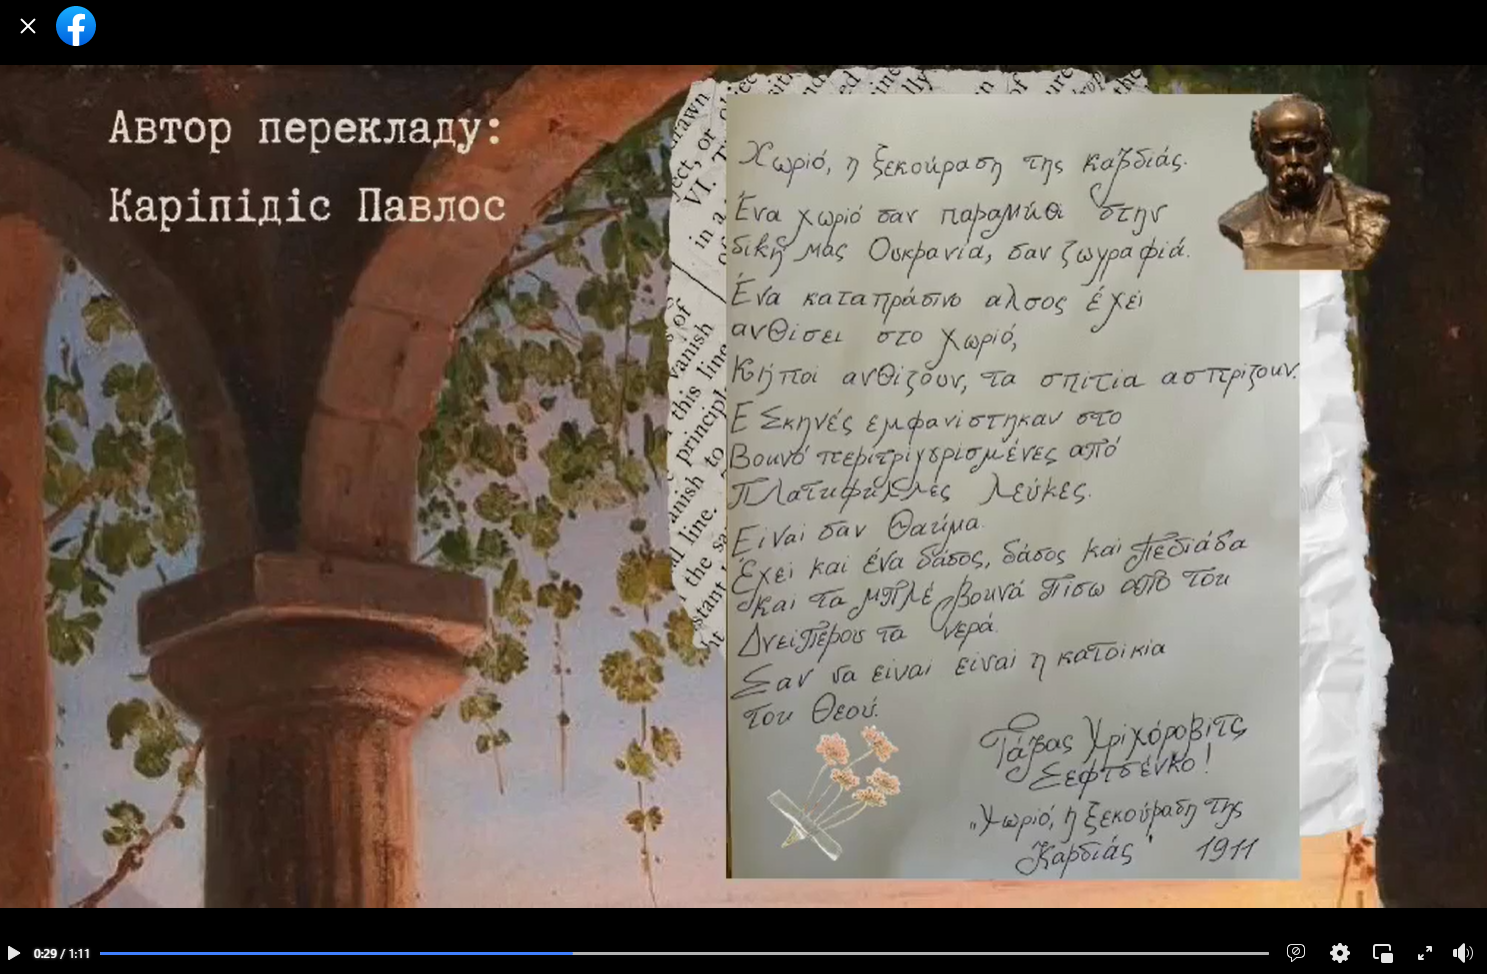 Автор перекладу:
Каріпідіс Павлос
Χωριό, η ξεκούραση της καρδιάς.
Ένα χωριό σαν παραμύθι στην
δική μας Ουκρανία, σαν ζωγραφιά.
Ένα καταπράσινο αλσος έχει
ανθίσει στο χωριό,
Κήποι ανθίζουν, τα σπίτια ασπρίζουν.
Ε Σκηνές εμφανίστηκαν στο
Βουνό περιτριγυρισμένες από
πλατυφυλλές λεύκες.
Είναι σαν θαύμα.
Έχει και ένα δάσος, δάσος και πεδιάδα
και τα μπλέ βουνά πίσω από του
Δνείπερου τα νερά.
Σαν να είναι είναι η κατοικία
του Θεού.
Τάρας Χριχόροβιτς
Σεφτσένκο!
„Χωριό, η ξεκούραση της
Καρδιάς" 1911
drawn
ject, or
VI.
in a
of
vanish
this line
principl
anish to
al line.
the sa
stant
0:29 / 1:11